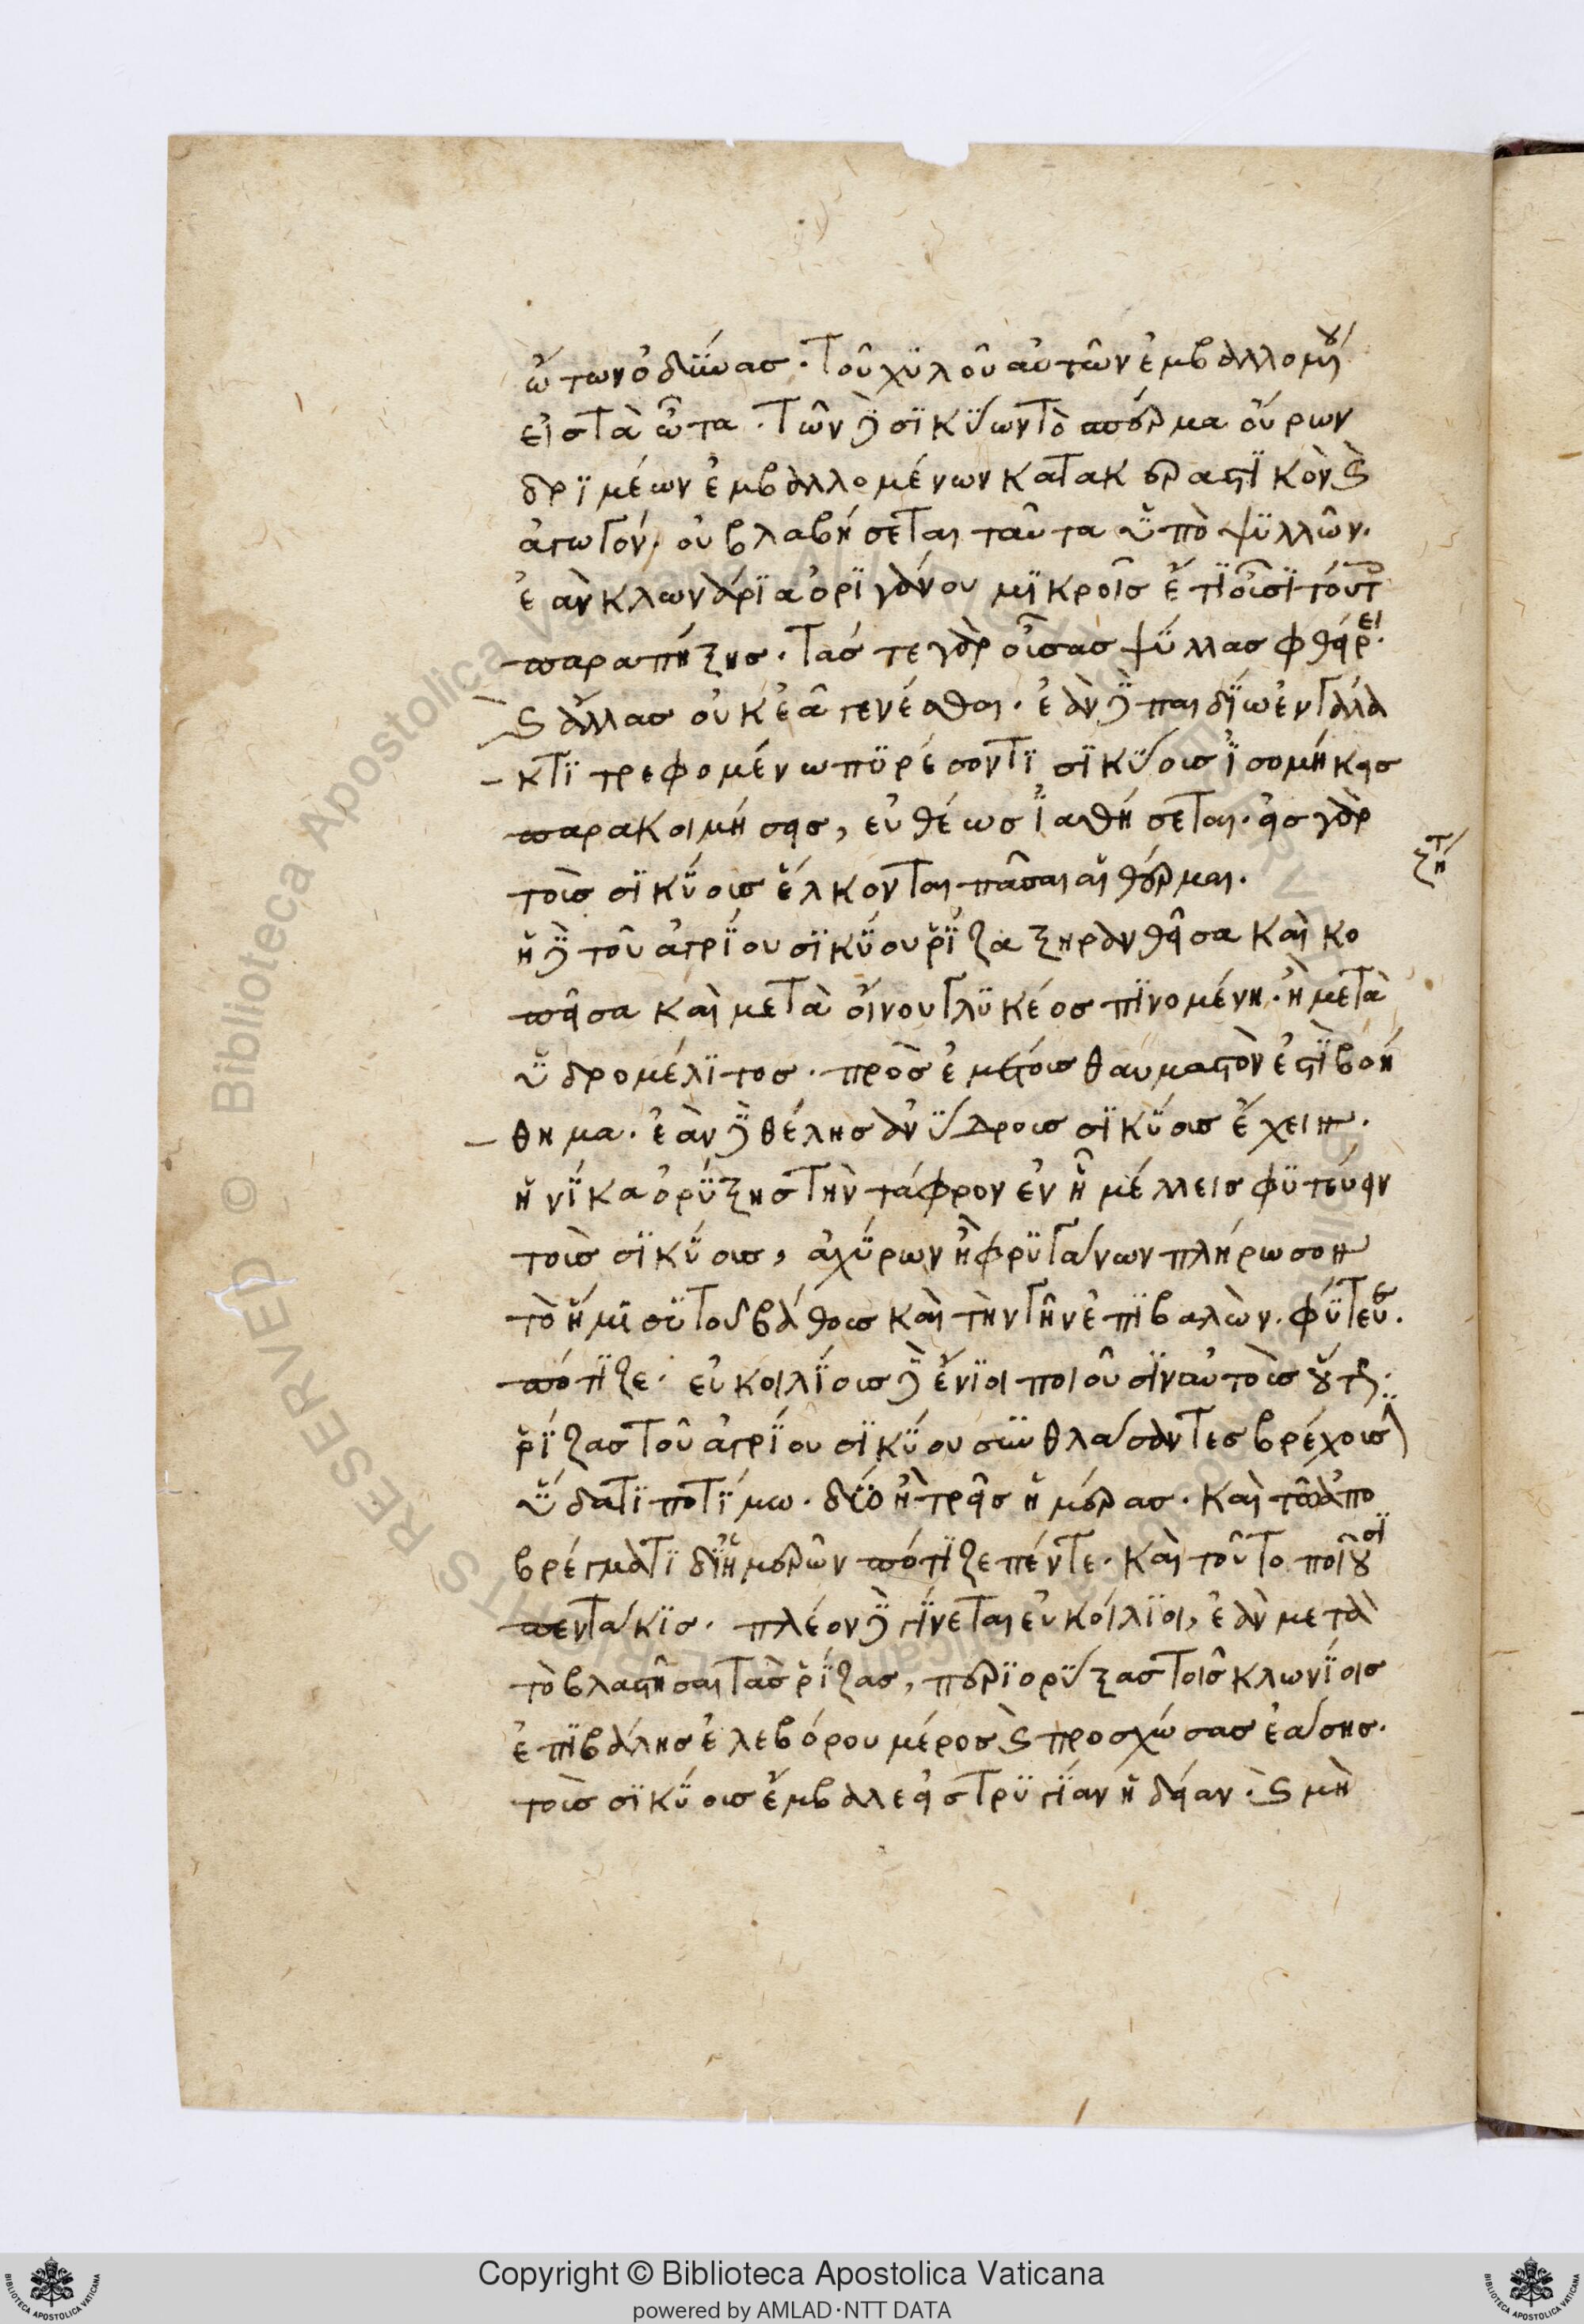 ὤτων ὀδύνας. τοῦ χυλοῦ αὐτῶν ἐμβαλλομένου
εἰς τὰ ὦτα. τῶν δὲ σικύων τὸ σπέρμα οὔρων
δριμέων ἐμβαλλομένων κατακεραστικὸν καὶ
ἀγωγόν. οὐ βλαβήσεται ταῦτα ὑπὸ ψυλλῶν.
ἐὰν κλωνάρια ὀριγάνου μικροῖς ἔτι οἶσι τούτοις
παραπήξης. τάς τε γὰρ οὔσας ψύλλας φθείρει.
καὶ ἄλλας οὐκ ἐᾶ γενέσθαι. ἐὰν δὲ παιδίω ἐν γάλα
κτι τρεφομένω πυρέσοντι σικύους ἰσομήκεις
παρακοιμήσεις, εὐθέως ἰαθήσεται. εἰς γὰρ
τοὺς σικύους ἕλκονται πᾶσαι αἱ θέρμαι.
ἡ δὲ τοῦ ἀγρίου σικύου ῥίζα ξηρανθεῖσα καὶ κο
πεῖσα καὶ μετὰ οἴνου γλυκέος πινομένη. ἢ μετὰ
ὑδρομέλιτος. πρὸς ἐμέτους θαυμαστὸν ἐστὶ βοή
θημα. ἐὰν δὲ θέλης ἀνύδρους σικύους ἔχειν.
ἡνίκα ὀρύξης τὴν τάφρον ἐν ἧ μέλλεις φυτεύειν
τοὺς σικύους, ἀχύρων ἢ φρυγάνων πλήρωσον
τὸ ἥμισυ τοῦ βάθους καὶ τὴν γῆν ἐπιβαλὼν. φύτευε.
πότιζε. εὐκοιλίους δὲ ἔνιοι ποιοῦσιν αὐτοὺς οὕτως:
ῥίζας τοῦ ἀγρίου σικύου συνθλάσαντες βρέχουσιν
ὕδατι ποτίμω. δύο ἢ τρεῖς ἡμέρας. καὶ τῶ ἀπο
βρέγματι δι' ἡμερῶν πότιζε πέντε. καὶ τοῦτο ποιοῦσι
πεντάκις. πλέον δὲ γίνεται εὐκοίλιοι, ἐὰν μετὰ
τὸ βλαστῆσαι τὰς ῥίζας, περιορύξας τοῖς κλωνίοις
ἐπιβάλης ἐλεβόρου μέρος καὶ προσχώσας ἐάσης.
τοὺς σικύους ἔμβαλε εἰς τρυγίαν ἡδεῖαν. καὶ μὴ